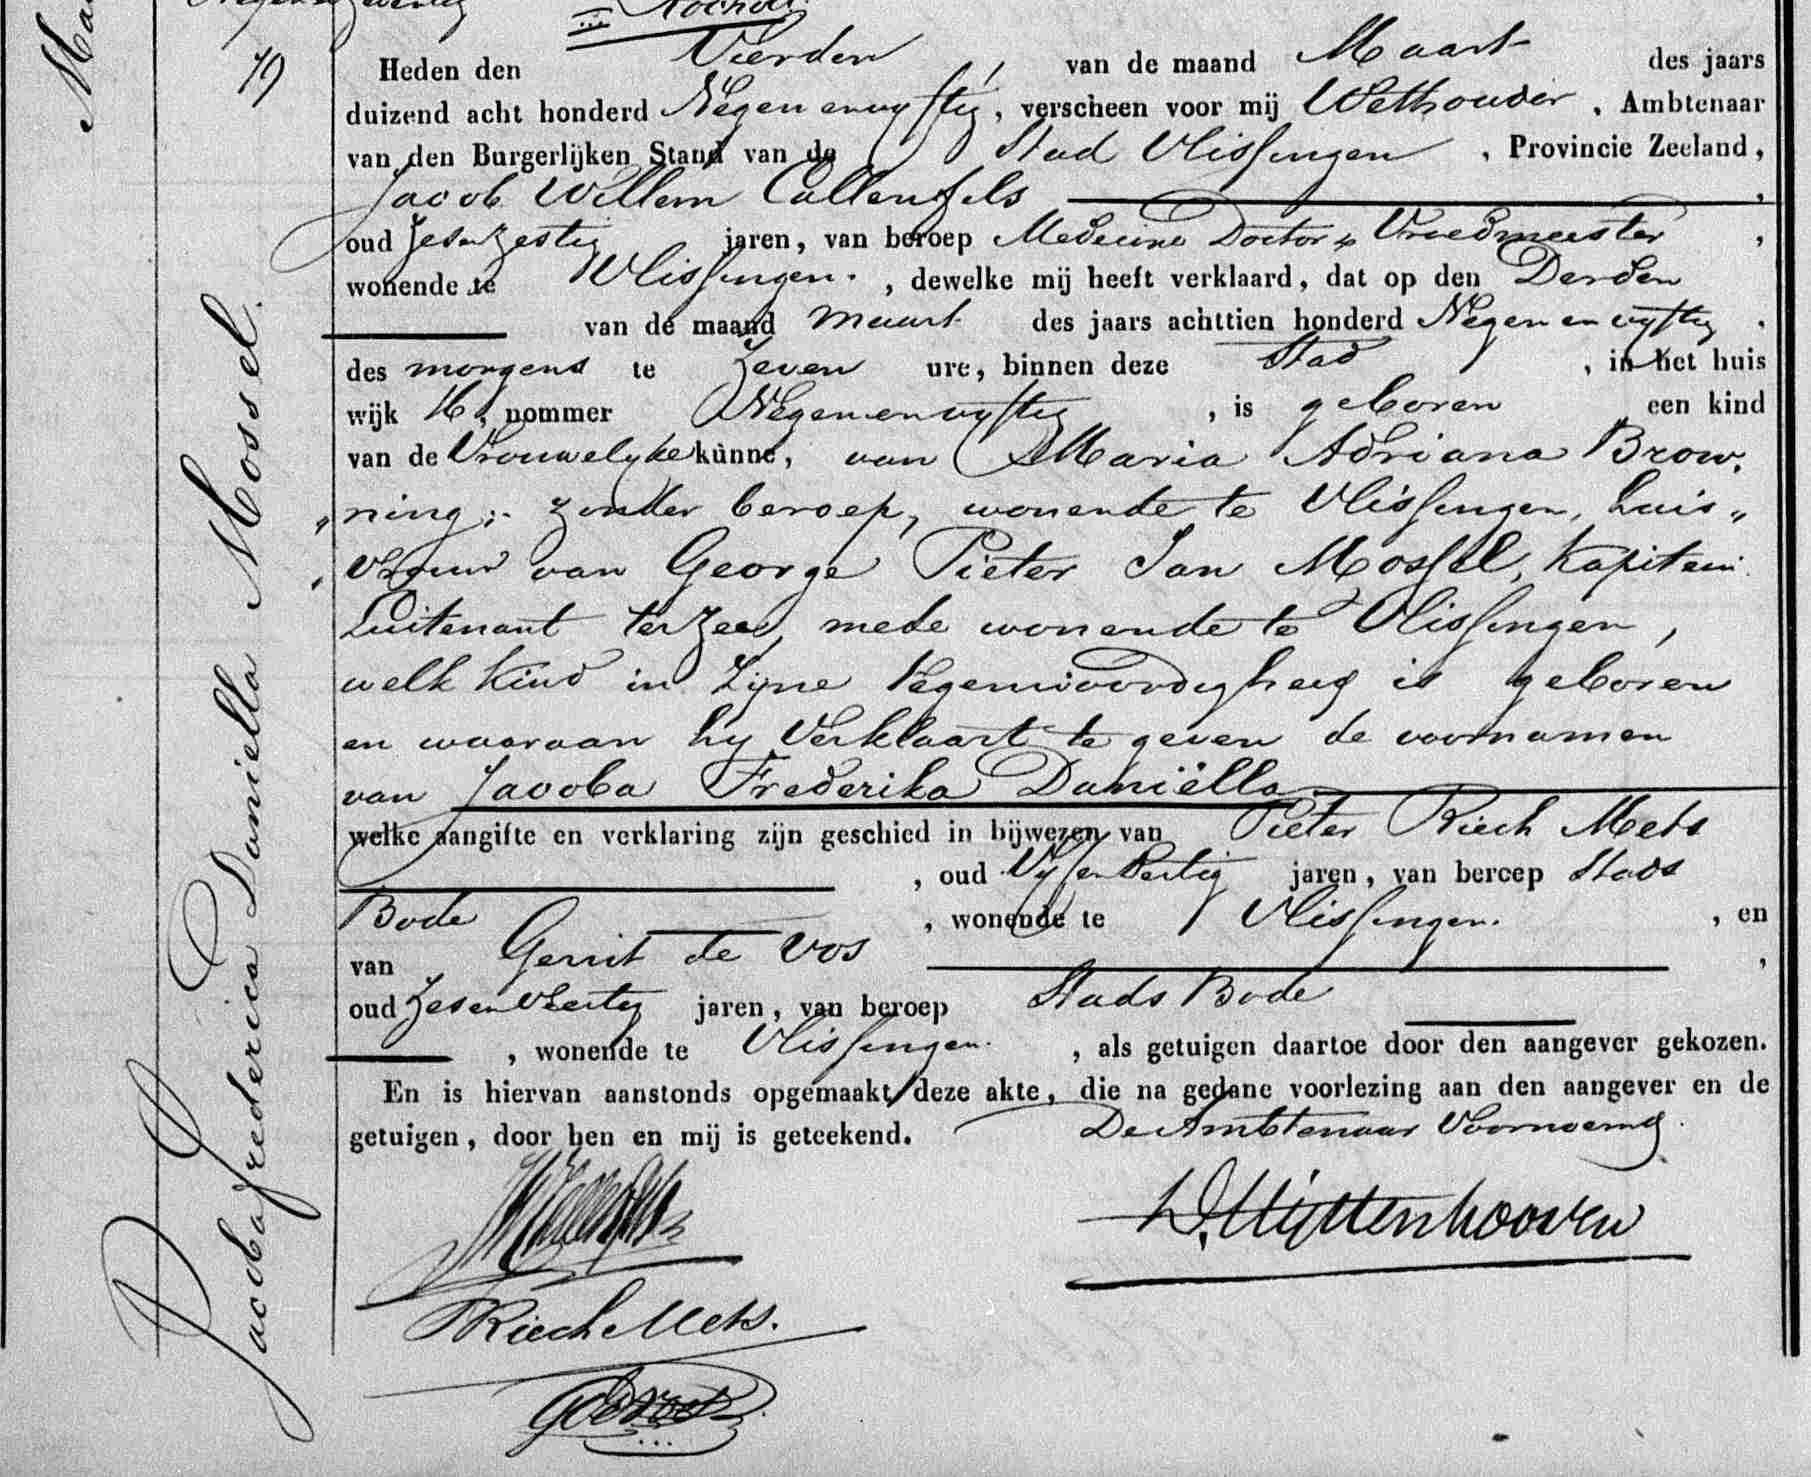 79
Heden den Vierden, van de maand Maart des jaars
duizend acht honderd Negen en vyftig, verscheen voor mij Wethouder, Ambtenaar
van den Burgerlijken Stand van de Stad Vlissingen, Provincie Zeeland,
Jacob Willem Callenfels,
oud Zesenzestig jaren, van beroep Medicine Doctor & Vroedmeester,
wonende te Vlissingen., dewelke mij heeft verklaard, dat op den Derden
van de maand maart des jaars achttien honderd Negen en vyftig,
des morgens te Zeven ure, binnen deze Stad, in het huis
wijk H, nommer Negen en vyftig, is geboren een kind
van de Vrouwelyke kunne, van Maria Adriana Brow„
„ning, zonder beroep, wonende te Vlissingen, huis„
„vrouw van George Pieter Jan Mossel, Kapitein
Luitenant ter Zee, mede wonende te Vlissingen,
welk kind in zyne tegenwoordigheid is geboren
en waaraan hy Verklaart te geven de voornamen
van Jacoba Frederika Daniëlla
welke aangifte en verklaring zijn geschied in bijwezen van Pieter Riech Mets
, oud Vyf en Dertig jaren, van beroep Stads
Bode, wonende te Vlissingen., en
van Gerrit de Vos,
oud Zes en Veertig jaren, van beroep Stads Bode
, wonende te Vlissingen., als getuigen daartoe door den aangever gekozen.
En is hiervan aanstonds opgemaakt deze akte, die na gedane voorlezing aan den aangever en de
getuigen, door hen en mij is geteekend. De Ambtenaar Voornoemd.
D. Uijttenhooven
PRiech Mets.
GdeVos
Jacoba frederica Daniella Mossel.